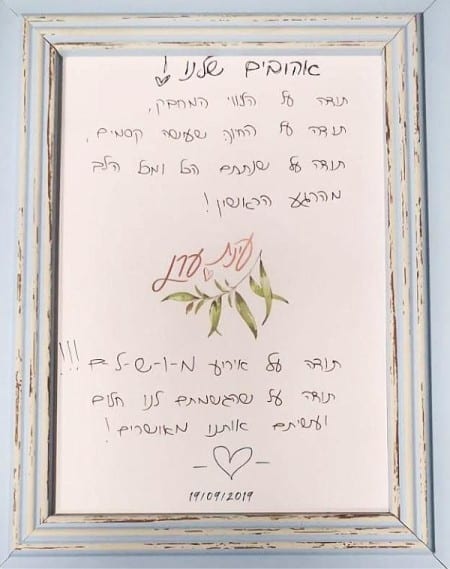 אהובים שלנו!
תודה על הלווי המחבק,
תודה על החינה שעישה קסמים,
תודה על שנתתם הכל ומכל הלב
מהרגע הראשון!
עינת ♡ ערן
תודה על אירוע מ-ו-ש-ל-ם !!!
תודה על שהגשמתם לנו חלום
ועשיתם אותנו מאושרים!
-♡-
19/09/2019